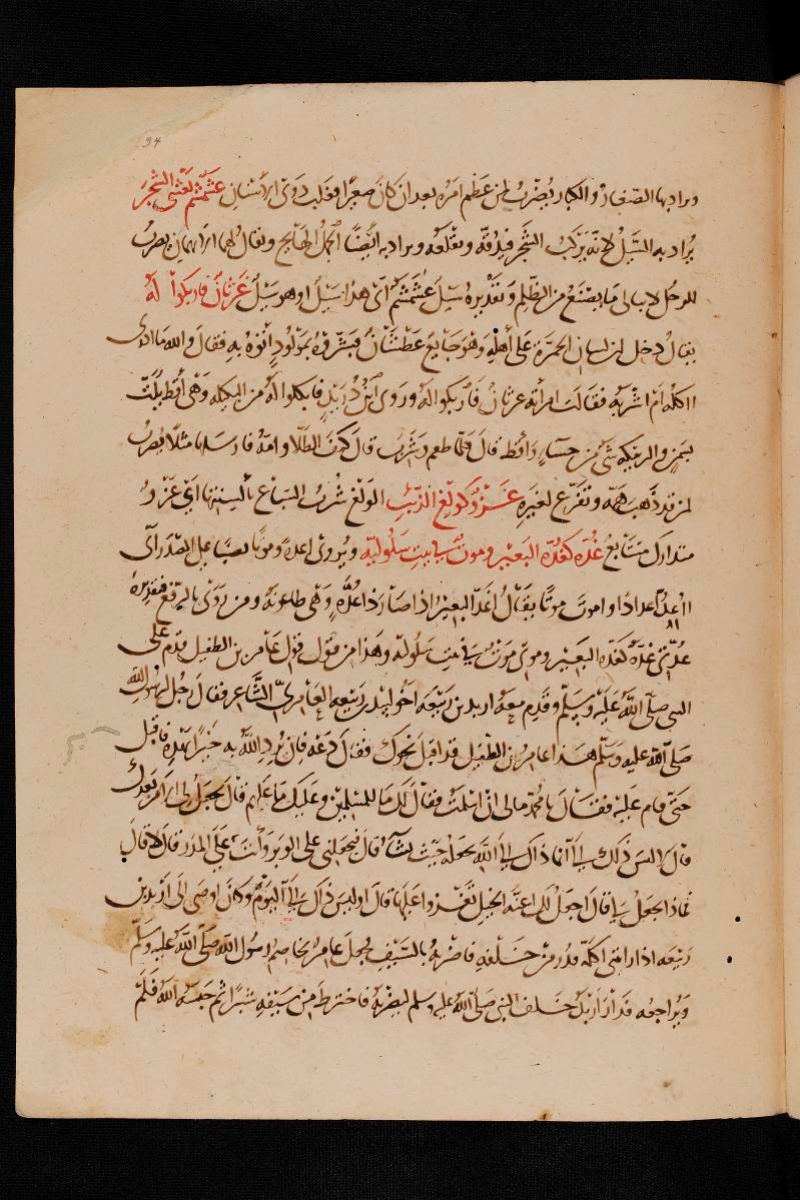 94
ويراد بها الصغار والكبار يضرب لمن عظم امره بعد ان كان صغيرا فغلب ذوى الاسنان غشمشم يغشى الشجر
يُراد به السَّيْلُ لانه يركب الشجر فيدُقّه ويقلعه ويراد به ايضًا الجملُ الهايج ويقال لهما الايهمان يضرب
للرجل لا يبالى ما يصنع من الظلم وتقديره سيل غشمشم اى هذا سيل او هو سيل غرثان فاربكوا له
يقال دخل ابن لسان الحمرة على أهله وهو جايع عطشان فبشروه بمولود وأتوه به فقال والله ما ادرى
ااكله ام اشربه فقالت امرأته غرثان فاربكوا له وروى ابن دريد فابكلوا له من البكيله وهى أقط يُلَتّ
بسمن والربيكه شئ من حساء واقط قال فلما طعم وشرب قال كيف الطلا وامّه فارسلها مثلا يضرب
لمن قد ذهب همه وتفرغ لغيره غزو كولغ الذئب الولغ شرب السباع بألسنتها اى غزو
متدارك متتابع غُدّه كغُدّة البعير وموت فى بيت سلوليه ويروى اغدةً وموتًا نصبا على المصدر اى
ااُغدّ اغدادًا واموت موتًا يقال اغدّ البعير اذا صار ذا غُدَّه وهى طاعونه ومن روى بالرفع فتقديره
غدتى غدّة كغدّه البعير وموتى موت فى بيت سلوليه وهذا من قول عامر بن الطفيل قدم على
النبى صلى الله عليه وسلم وقدم معه اربد بن ربيعه اخو لبيد بن ربيعه العامرىّ الشاعر فقال رجل لرسول الله
صلى الله عليه وسلم هذا عامر بن الطفيل قد اقبل نحوك فقال دَعْه فان يُرِدِ اللّٰه به خيرًا يهده فاقبل
حتى قام عليه فقال يا محمد مالى ان اسلمت فقال لك ما للمسلمين وعليك ما عليهم قال تجعل لى الامر بعدك
قال ليس ذلك الىّ انما ذاك الى الله يجعله حيث يشآء قال فتجعلنى على الوبر وأنت على المدر قال لا قال
فماذا تجعل لى قال اجعل لك اعنّة الخيل تغزو عليها قال اوليس ذاك الىّ اليوم وكان اوصى الى اربد بن
ربيعه اذا رايتنى اكلّمه فدُر من خلفه فاضربه بالسيف فجعل عامر يخاصم رسول الله صلى الله عليه وسلم
ويُراجعه فدار اربد خلف النبى صلى الله عليه وسلم ليضربه فاخترط من سيفه شبرًا ثم حبسه الله فلم